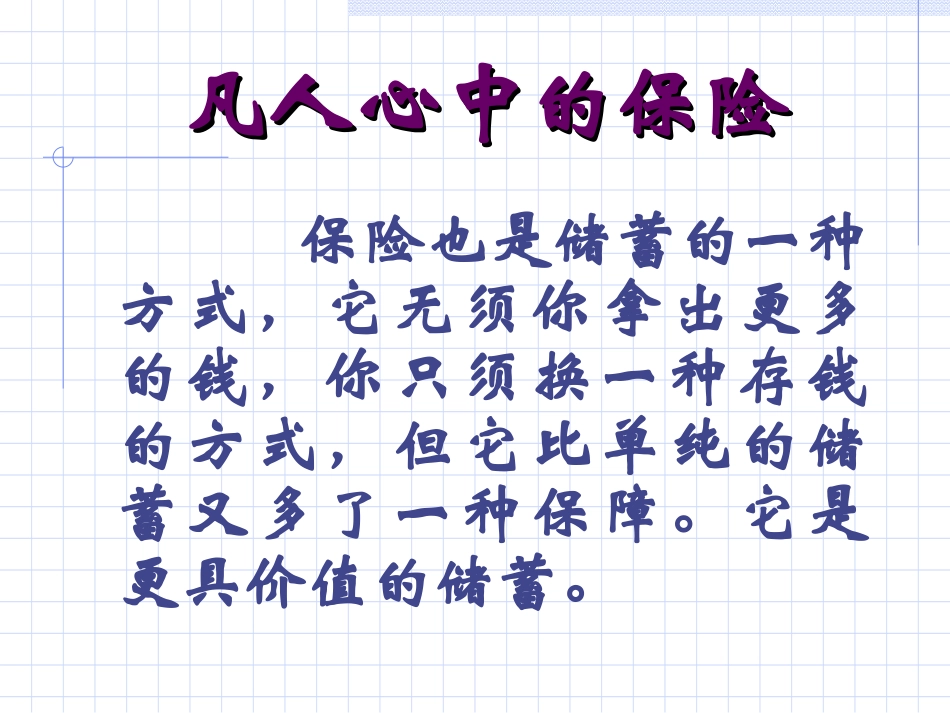 凡人心中的保险
保险也是储蓄的一种
方式，它无须你拿出更多
的钱，你只须换一种存钱
的方式，但它比单纯的储
蓄又多了一种保障。它是
更具价值的储蓄。